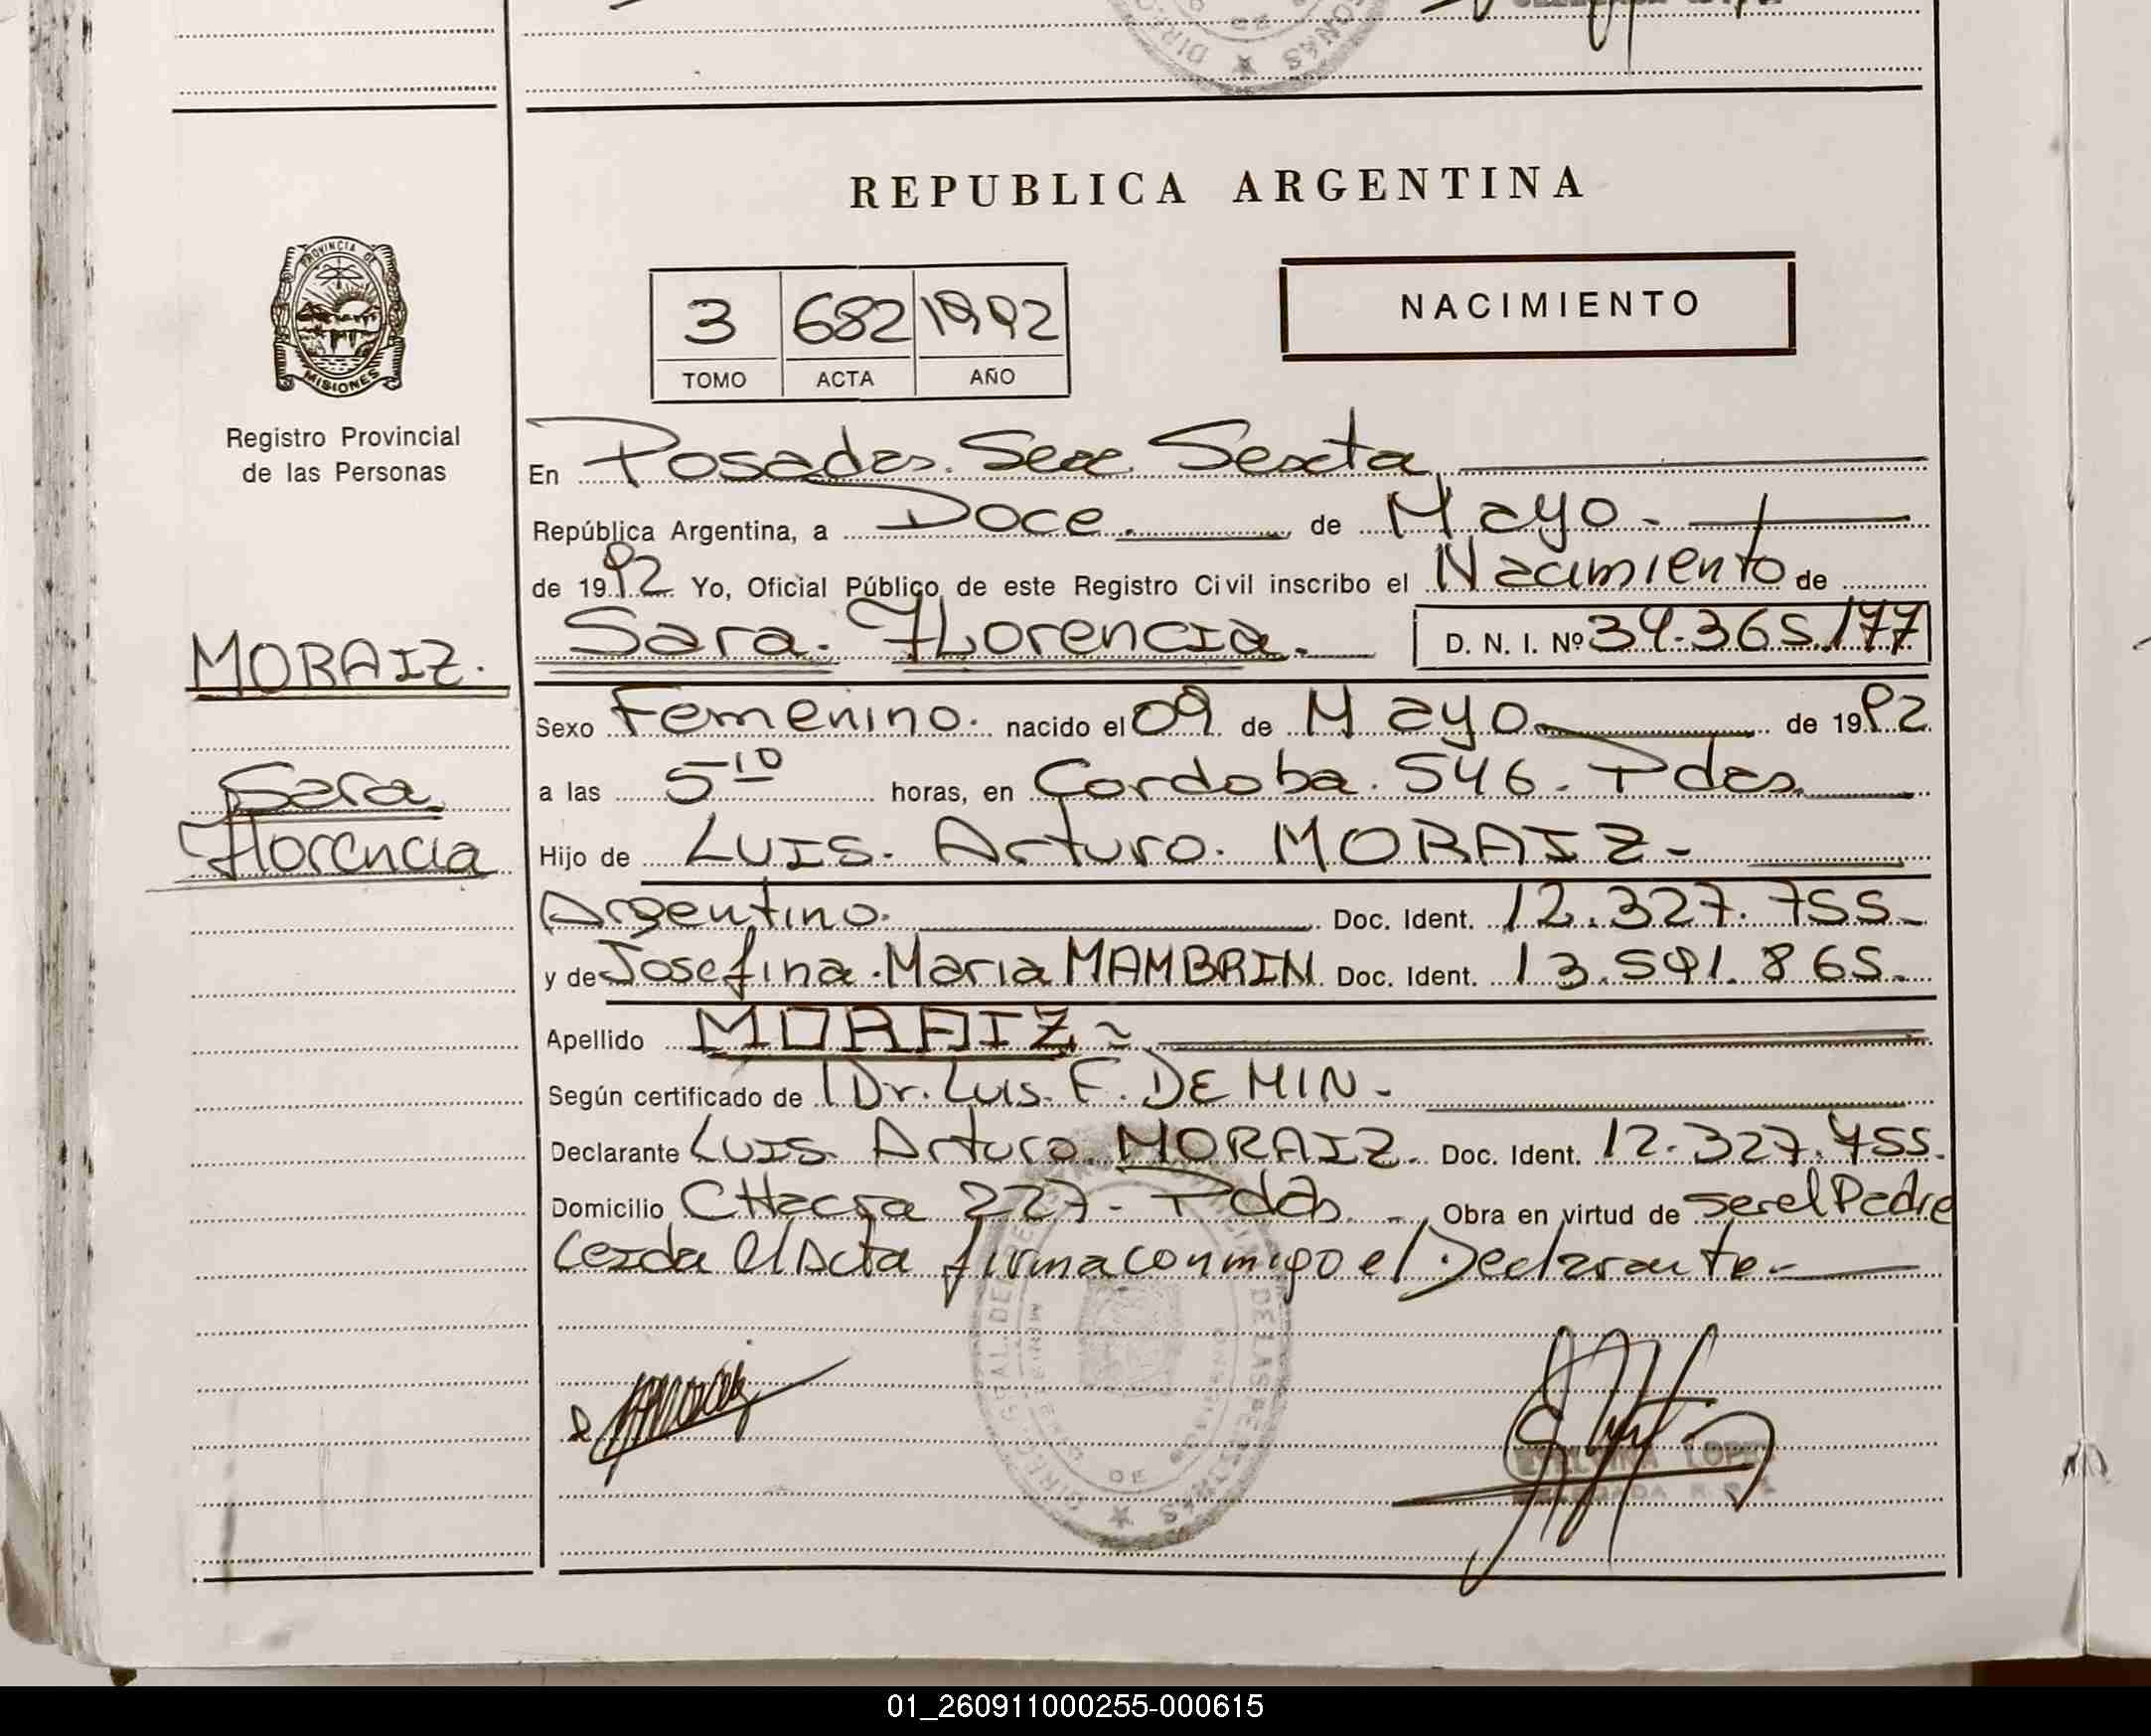 REPUBLICA ARGENTINA
PROVINCIA DE
MISIONES
Registro Provincial
de las Personas
3 682 1992
TOMO ACTA AÑO
NACIMIENTO
En Posadas. Secc. Sexta
República Argentina, a Doce. de Mayo.
de 1992 Yo, Oficial Público de este Registro Civil inscribo el Nacimiento de
Sara. Florencia. D. N. I. Nº 34.365.177
MORAIZ.
Sara
Florencia
Sexo Femenino. nacido el 09 de Mayo de 1992
a las 5 10 horas, en Cordoba. 546. Pdas.
Hijo de LUIS. Arturo. MORAIZ-
Argentino. Doc. Ident. 12.327.755-
y de Josefina. Maria MAMBRIN Doc. Ident. 13.591.865-
Apellido MORAIZ
Según certificado de Dr. Luis. F. DE MIN-
Declarante LUIS Arturo MORAIZ. Doc. Ident. 12.327.755.
Domicilio CHacra 227- Pdas. Obra en virtud de ser el Padre
Leida el Acta firma conmigo el Declarante-
DE
LOPE
01_260911000255-000615